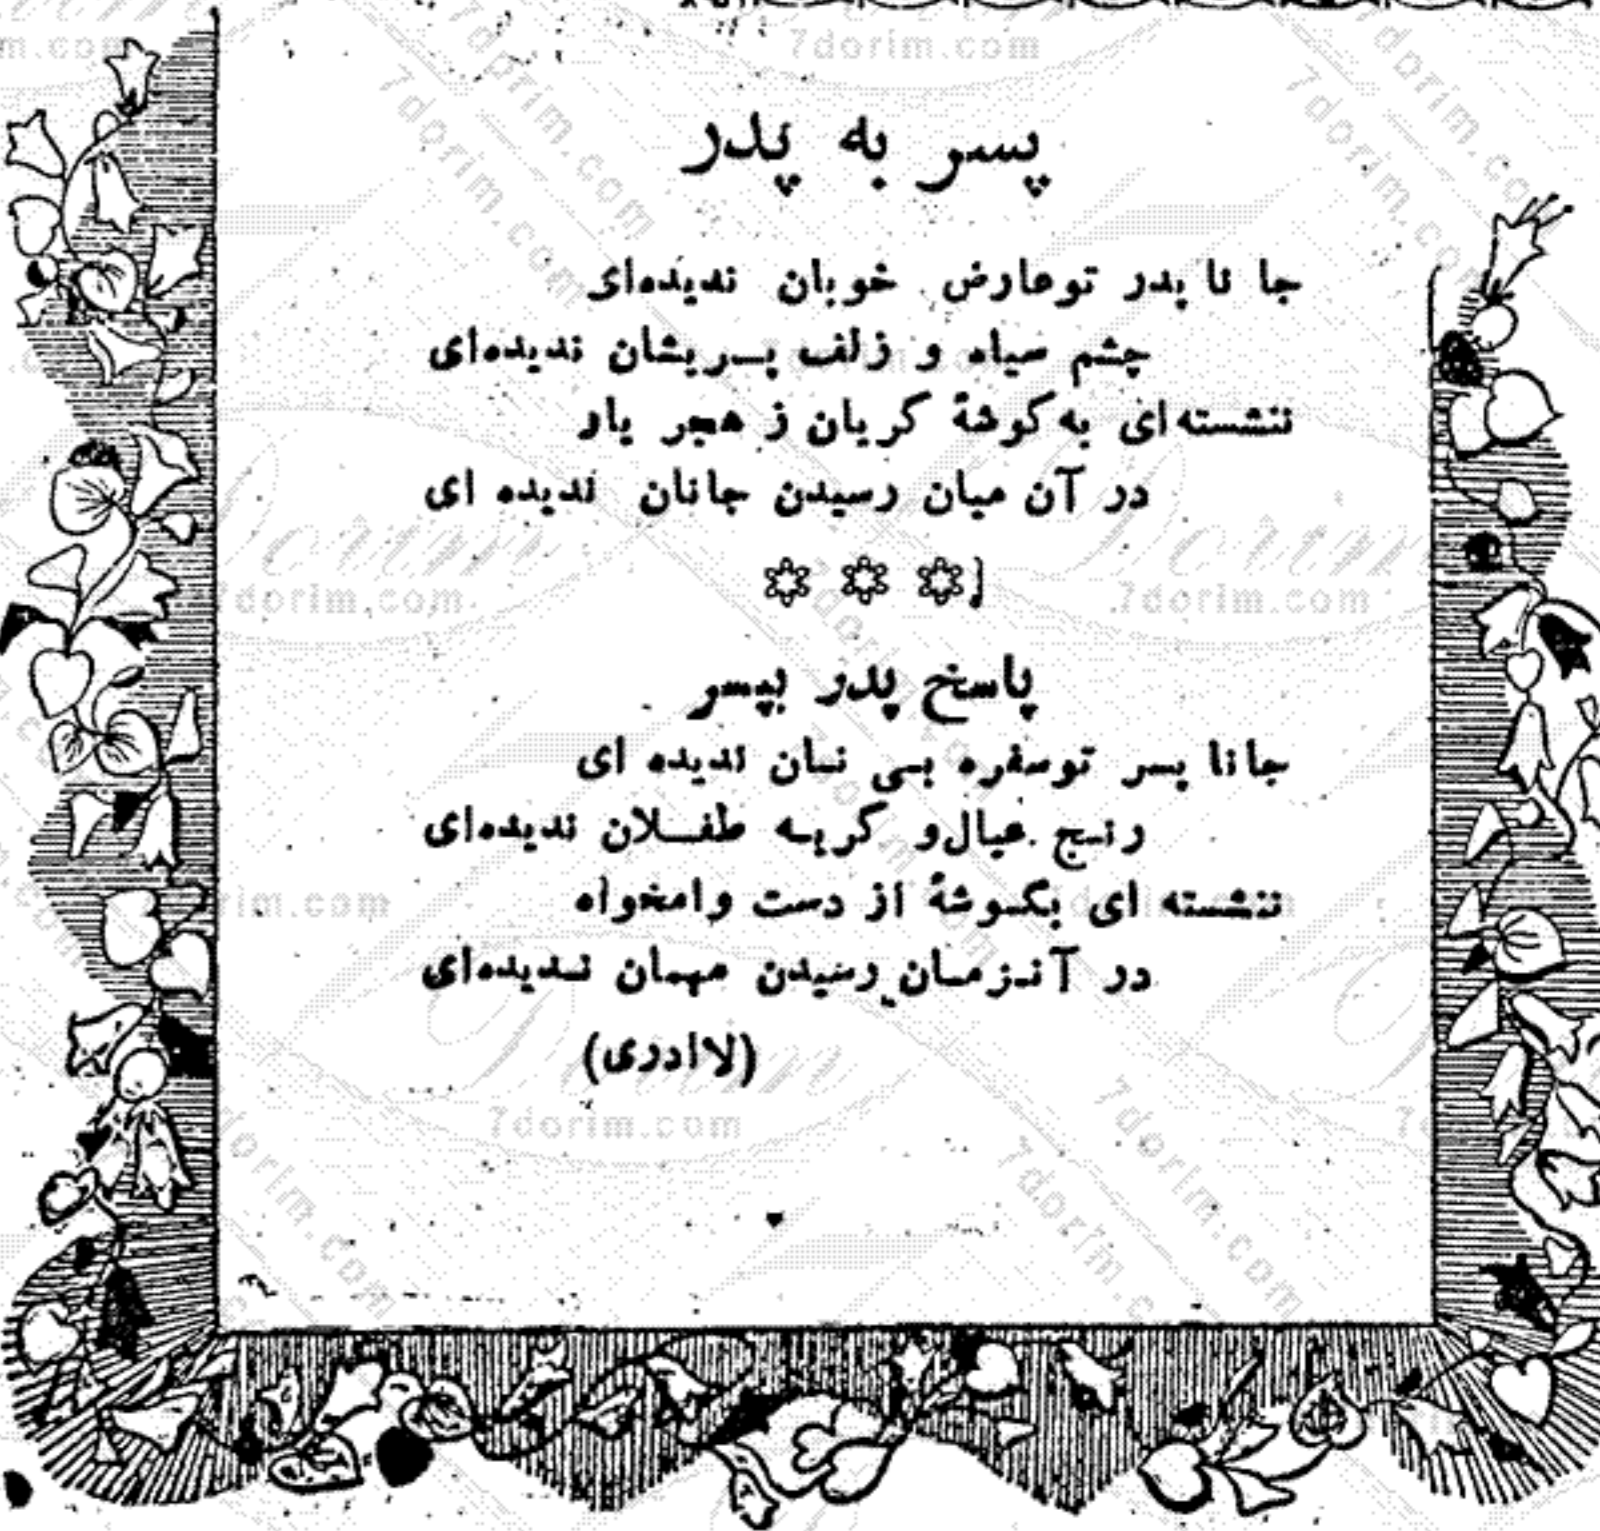 پسر به پدر
جا نا پدر تو عارض خوبان ندیده‌ای
چشم سیاه و زلف پریشان ندیده‌ای
ننشسته ای به کوشهٔ کریان ز هجر یار
در آن میان رسیدن جانان ندیده ای
پاسخ پدر بپسر
جانا پسر تو سفره بی نان ندیده ای
رنج عیال و کریه طفلان ندیده‌ای
ننشسته ای بکوشهٔ از دست وامخواه
در آنزمان رسیدن مهمان ندیده‌ای
(لاادری)
7dorim.com